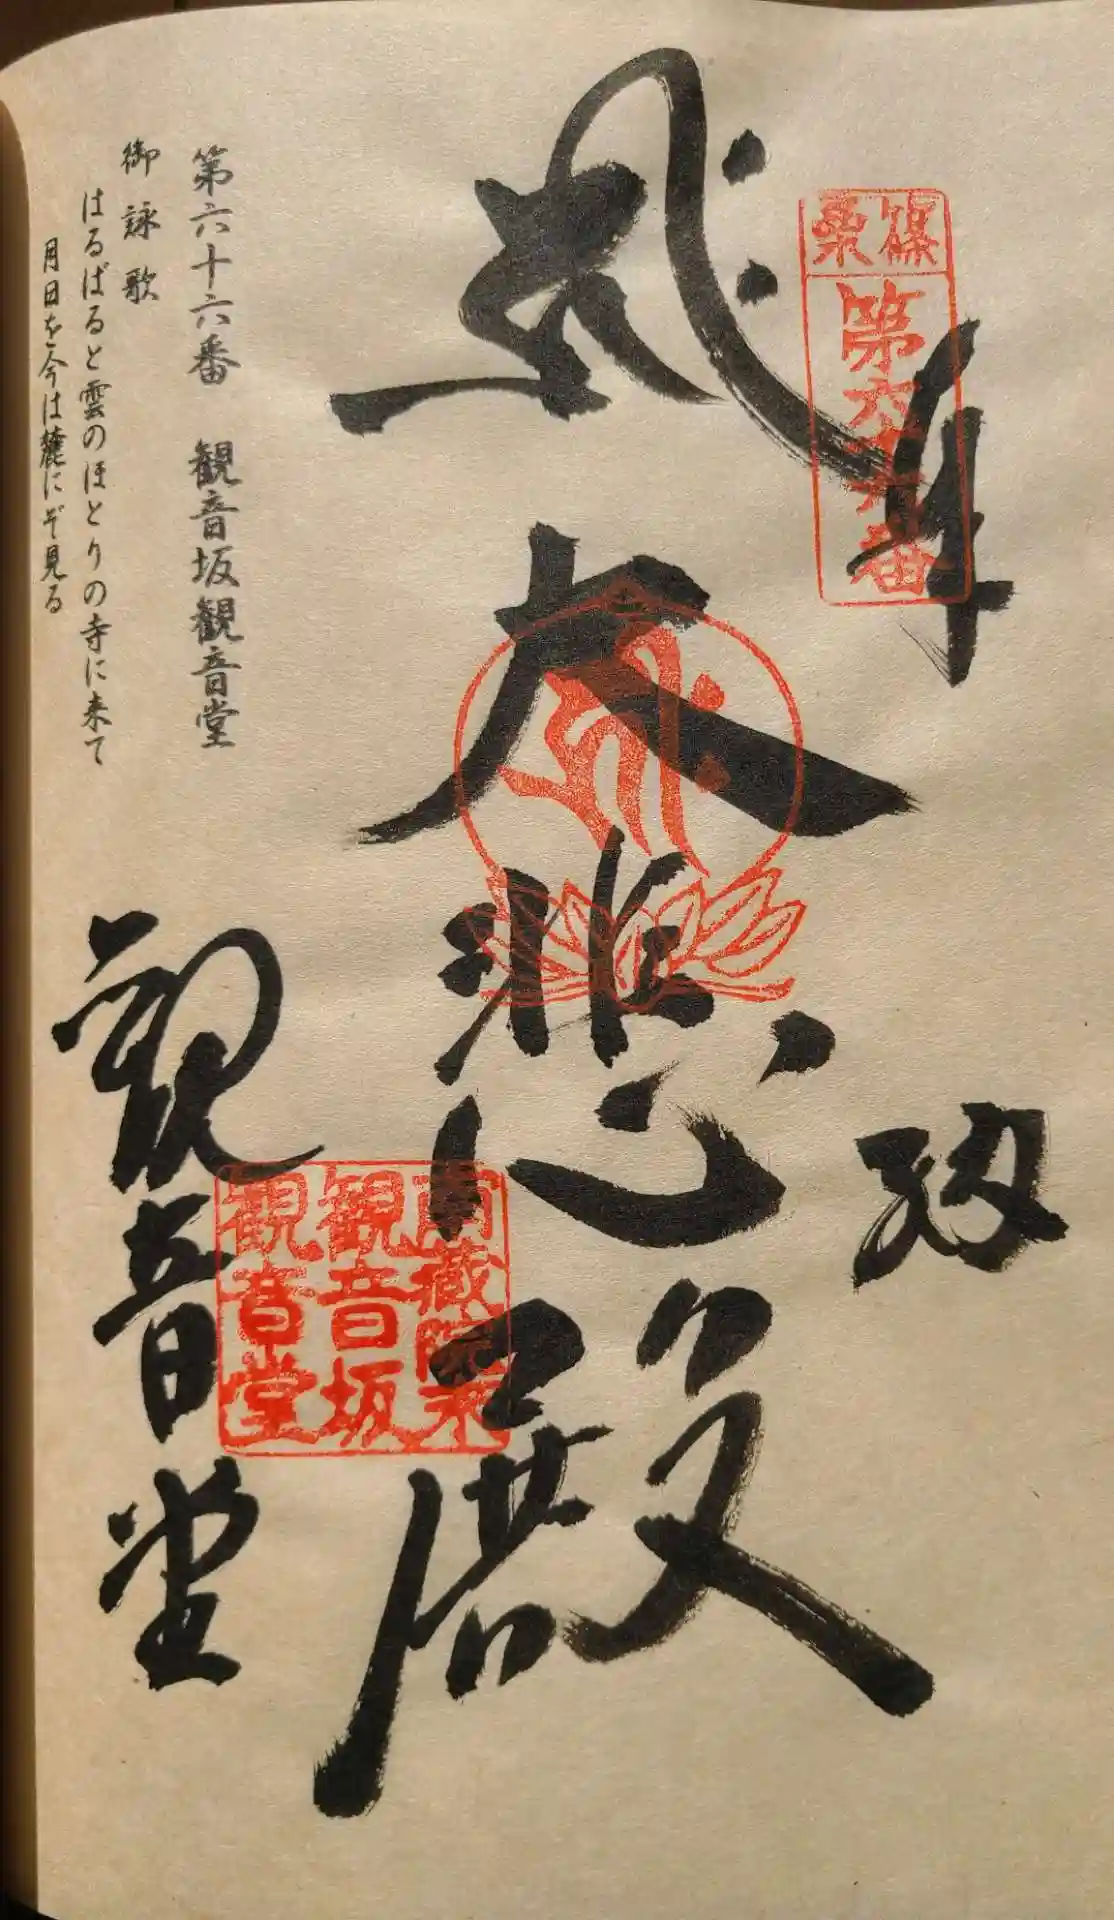 篠栗
第六十六番
奉納
大悲殿
南蔵院
観音坂
観音堂
観音堂
第六十六番　観音坂観音堂
御詠歌
はるばると雲のほとりの寺に来て
月日を今は麓にぞ見る